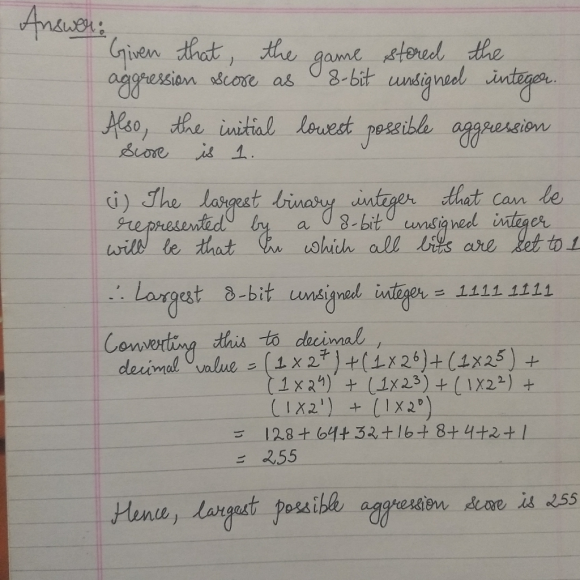 Answer:
Given that, the game stored the
aggression score as 8-bit unsigned integer.
Also, the initial lowest possible aggression
score is 1.
(i) The largest binary integer that can be
represented by a 8-bit unsigned integer
will be that in which all bits are set to 1
∴ Largest 8-bit unsigned integer = 1111 1111
Converting this to decimal,
decimal value = (1×2⁷)+(1×2⁶)+(1×2⁵) +
(1×2⁴) + (1×2³) + (1×2²) +
(1×2¹) + (1×2⁰)
= 128+64+32+16+8+4+2+1
= 255
Hence, largest possible aggression score is 255